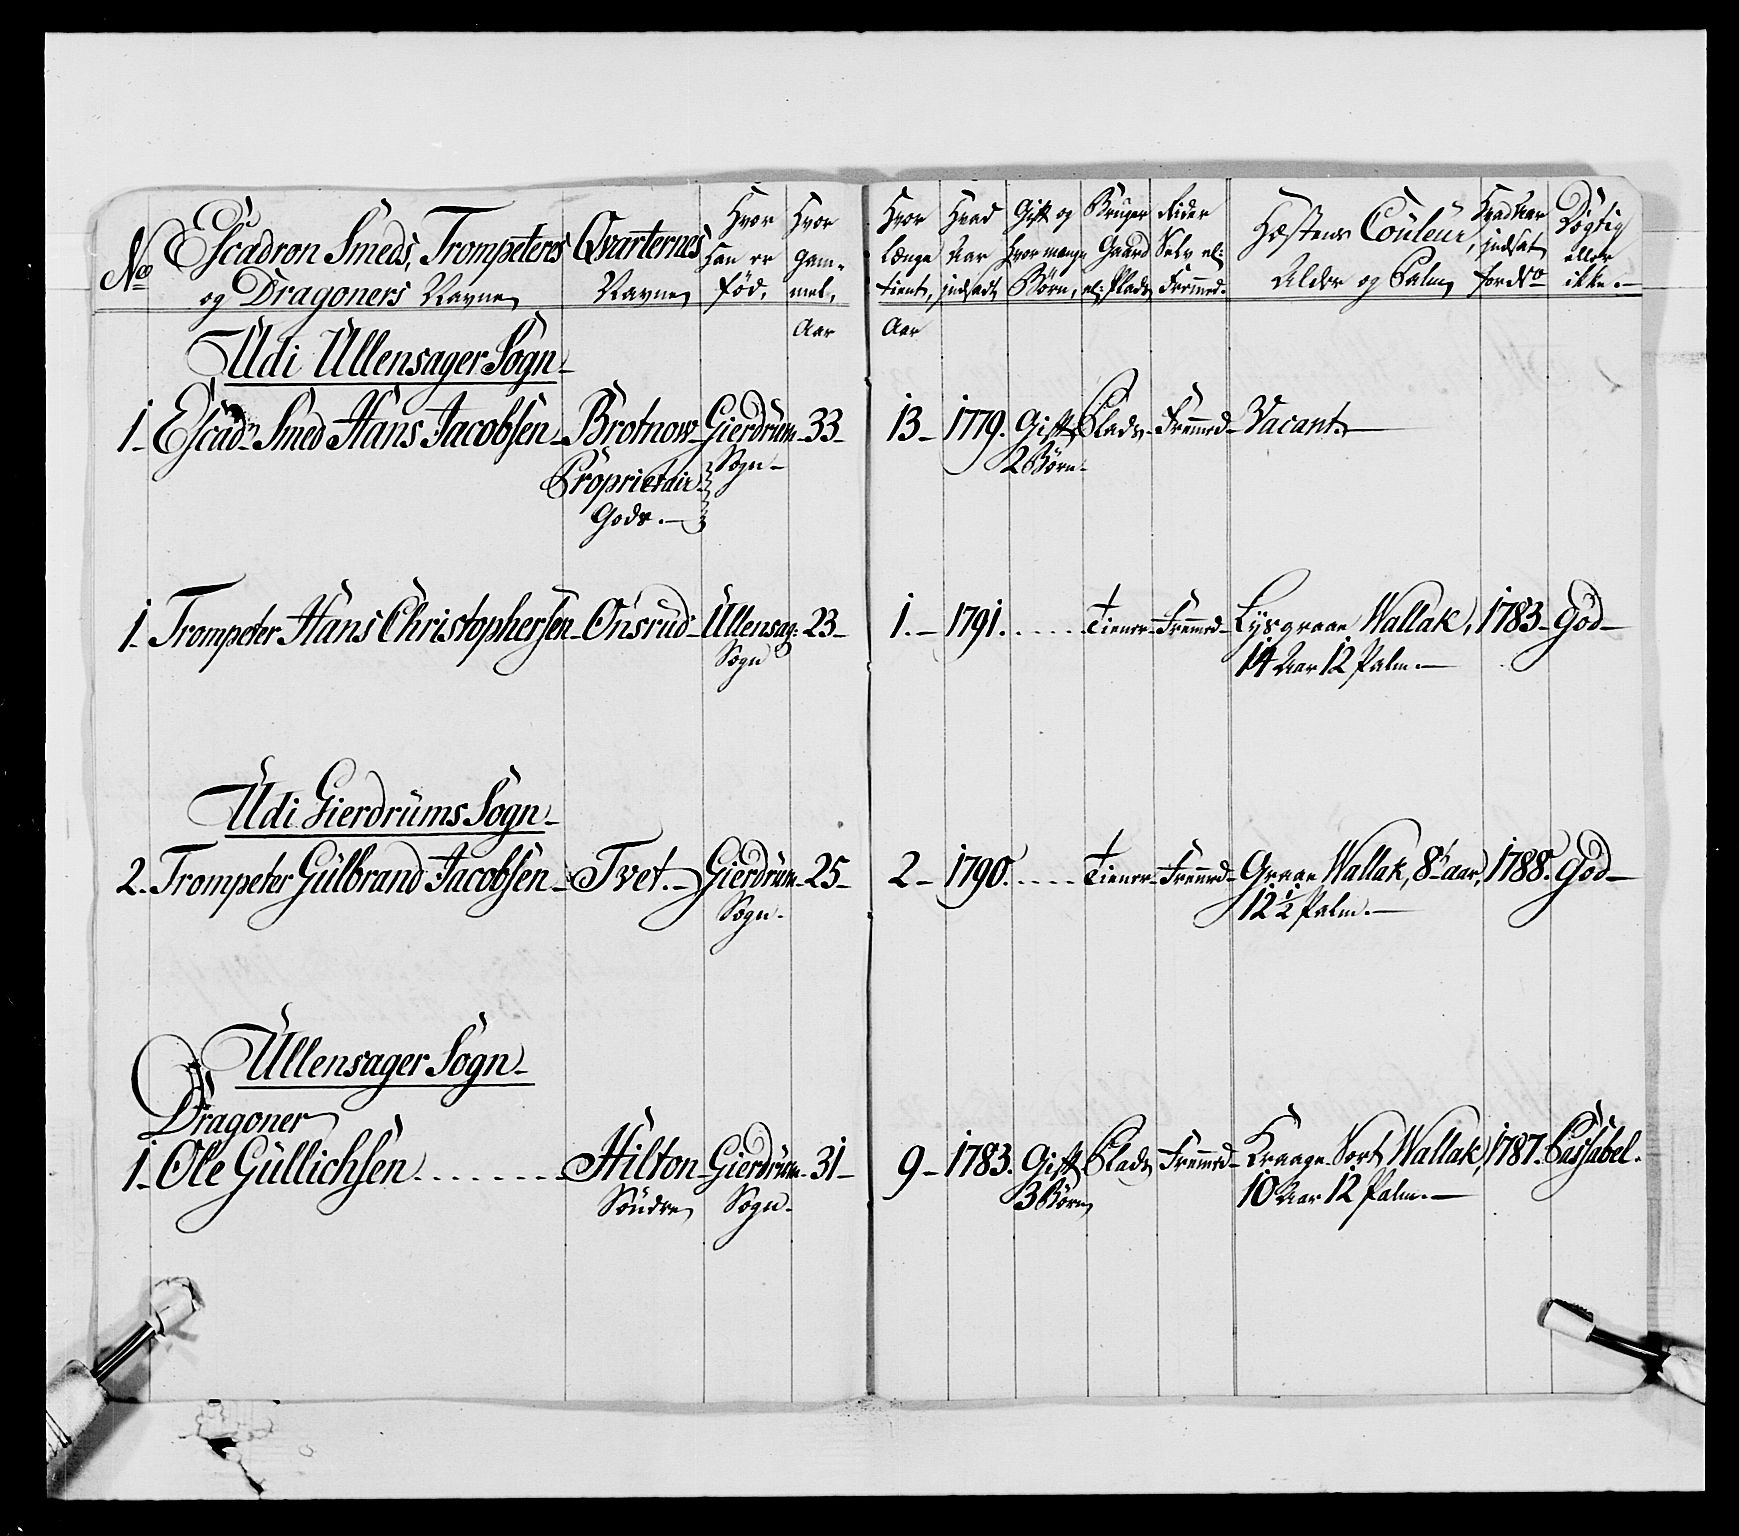 No
Escadron Smeds, Trompeteres
og Dragoners Navne
Qvarternes
Navne
Hvor
han er
fød,
Hvor
gam-
mel,
Aar
Hvor
længe
tient,
Aar
Hvad
Aar
indsadt
Gift og
hvor mange
Børn,
Bruger
Gaard
el: Plads
Rider
Selv el:
Fremed.
Hæstens Couleur,
Alder og Palm
Hvad Aar
indsat
Dögtig
eller
ikke.
Udi Ullensager Sogn
1. Escadn Smed Hans Jacobsen Brotnow Gierdrum 33 13 1779. Gift Plads Fremed Vacant.
Proprietair Sogn 2 Børn
Gods.
1. Trompeter Hans Christophersen Onsrud Ullensag: 23 1. 1791. Tiener Fremed Lysgraae Wallak, 1783 God
Sogn 14 Aar 12 Palm.
Udi Gierdrums Sogn
2. Trompeter Gulbrand Jacobsen Tvet. Gierdrum 25 2 1790. Tiener Fremed Graae Wallak, 8 aar, 1788. God
Sogn. 12 1/2 Palm.
Ullensager Sogn
Dragoner
1 Ole Gullichsen Hilton Gierdrum 31 9 1783. Gift Plads Fremed Kraage Sort Wallak, 1787. Passabel.
Söndre Sogn. 3 Børn 10 Aar 12 Palm.